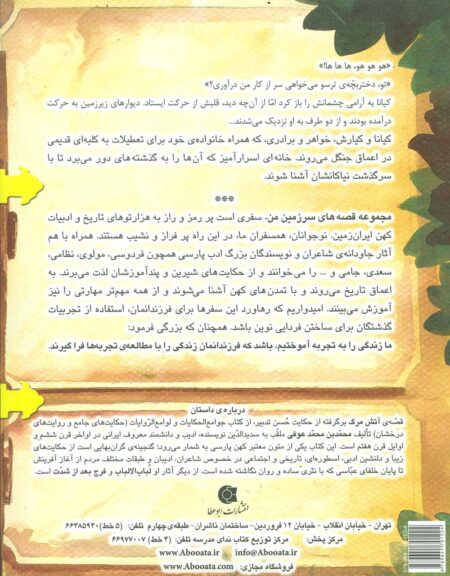 «هو هو هو، ها ها ها!»
«تو، دختربچّه‌ی ترسو می‌خواهی سر از کار من درآوری؟»
کیانا به آرامی چشمانش را باز کرد امّا از آن‌چه دید، قلبش از حرکت ایستاد. دیوارهای زیرزمین به حرکت
درآمده بودند و از دو طرف به او نزدیک می‌شدند...
کیانا و کیارش، خواهر و برادری، که همراه خانواده‌ی خود برای تعطیلات به کلبه‌ای قدیمی
در اعماق جنگل می‌روند. خانه‌ای اسرارآمیز که آن‌ها را به گذشته‌های دور می‌برد تا با
سرگذشت نیاکانشان آشنا شوند.
***
مجموعه قصه‌های سرزمین من، سفری است پر رمز و راز به هزارتوهای تاریخ و ادبیات
کهن ایران‌زمین. نوجوانان، همسفران ما، در این راه پر فراز و نشیب هستند. همراه با هم
آثار جاودانه‌ی شاعران و نویسندگان بزرگ ادب پارسی همچون فردوسی، مولوی، نظامی،
سعدی، جامی و ... را می‌خوانند و از حکایت‌های شیرین و پندآموزشان لذت می‌برند. به
اعماق تاریخ می‌روند و با تمدن‌های کهن آشنا می‌شوند و از همه مهم‌تر مهارتی را نیز
آموزش می‌بینند. امیدواریم که رهاورد این سفرها برای فرزندانمان، استفاده از تجربیات
گذشتگان برای ساختن فردایی نوین باشد. همچنان که بزرگی فرمود:
ما زندگی را به تجربه آموختیم، باشد که فرزندانمان زندگی را با مطالعه‌ی تجربه‌ها فرا گیرند.
درباره‌ی داستان
قصّه‌ی آتش مرگ برگرفته از حکایت حُسن تدبیر، از کتاب جوامع‌الحکایات و لوامع‌الرّوایات (حکایت‌های جامع و روایت‌های
درخشان) تألیف محمّدبن محمّد عوفی ملقّب به سدیدالدّین نویسنده، ادیب و دانشمند معروف ایرانی در اواخر قرن ششم و
اوایل قرن هفتم است. این کتاب یکی از متون معتبر کهن پارسی به شمار می‌رود؛ گنجینه‌ی گران‌بهایی است از حکایت‌های
زیبا و دلنشین ادبی، اسطوره‌ای، تاریخی و اجتماعی در خصوص شاعران، ادیبان و طبقات مختلف مردم از آغاز آفرینش
تا پایان خلفای عبّاسی که با نثری ساده و روان نگاشته شده است. از دیگر آثار او لُباب‌الالباب و فرج بعد از شدّت است.
انتشارات ابوعطا
تهران - خیابان انقلاب - خیابان ۱۲ فروردین - ساختمان ناشران - طبقه‌ی چهارم تلفن: (۵ خط) ۶۶۴۸۵۹۴۰
مرکز پخش: مرکز توزیع کتاب ندای مدرسه تلفن: (۴ خط) ۶۶۹۷۷۰۰۷
www.Abooata.ir info@Abooata.ir
فروشگاه مجازی: www.Abooata.com